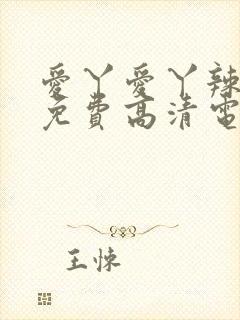 愛丫愛丫辣
免費高清電
王悚